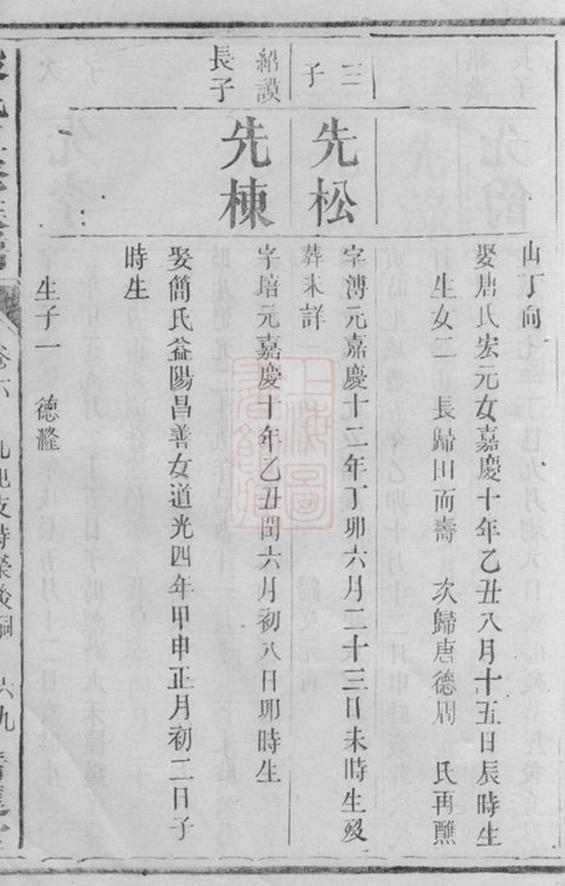 山丁向
娶唐氏宏元女嘉慶十年乙丑八月十五日辰時生
生女二 長歸田而壽 次歸唐德周 氏再醮
三子
先松
字溥元嘉慶十二年丁卯六月二十三日未時生歿
葬未詳
紹謨長子
先棟
字培元嘉慶十年乙丑閏六月初八日卯時生
娶簡氏益陽昌善女道光四年甲申正月初二日子
時生
生子一 德漋
卷六
六九